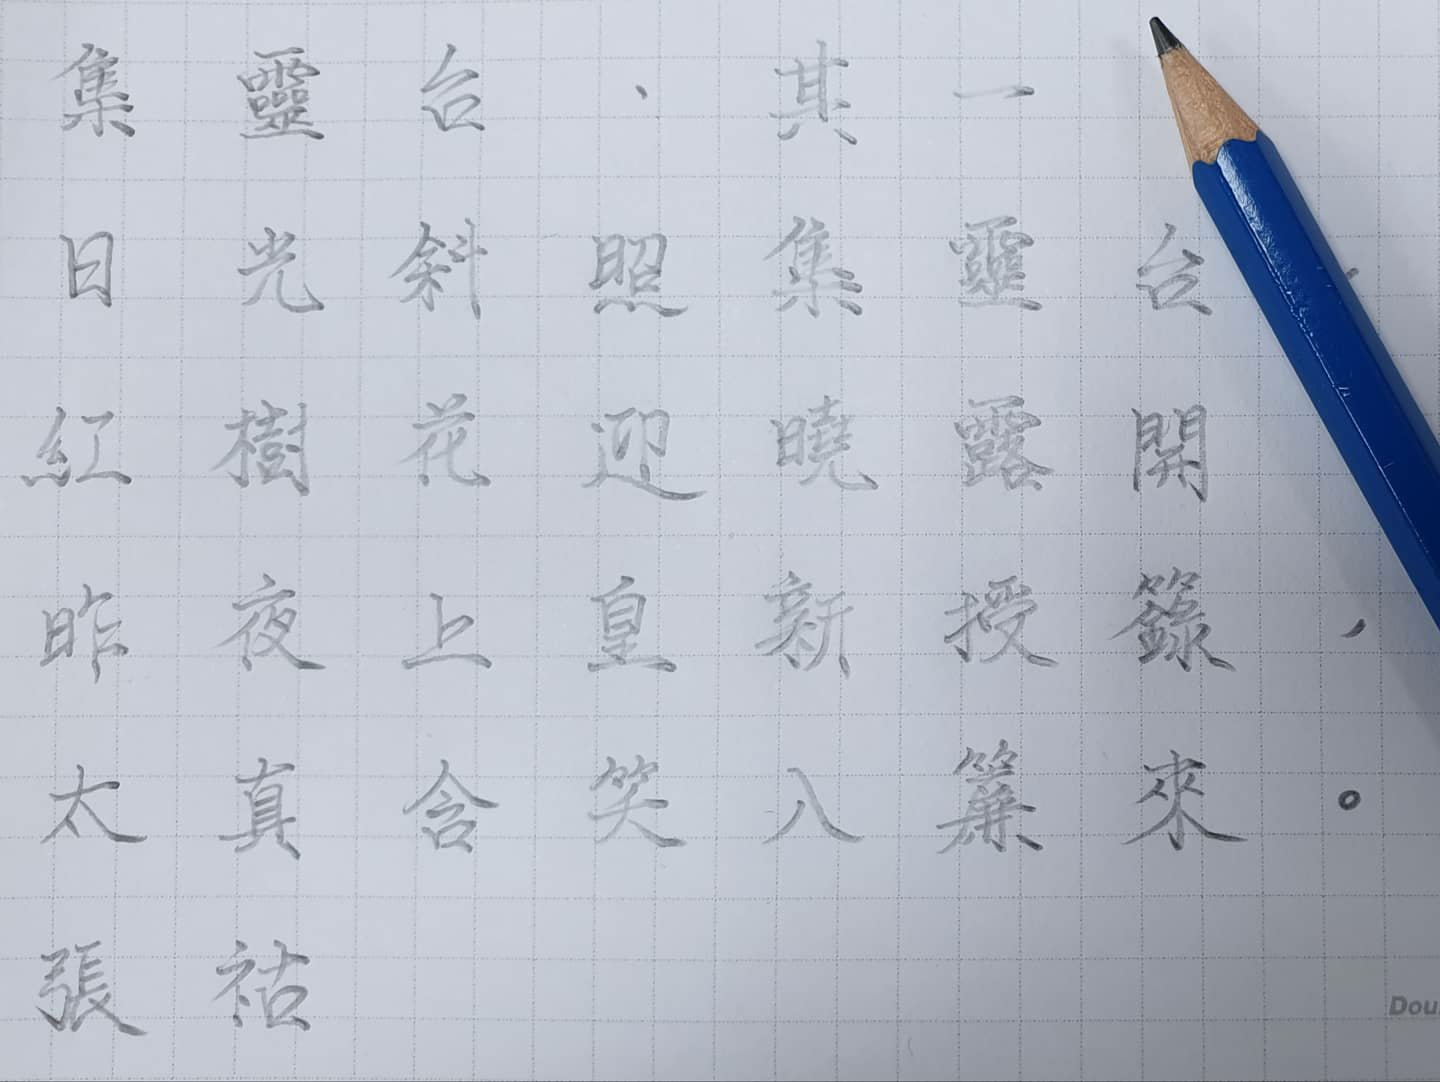 集靈台·其一
日光斜照集靈台，
紅樹花迎曉露開
昨夜上皇新授籙，
太真含笑入簾來。
張祜
Dou